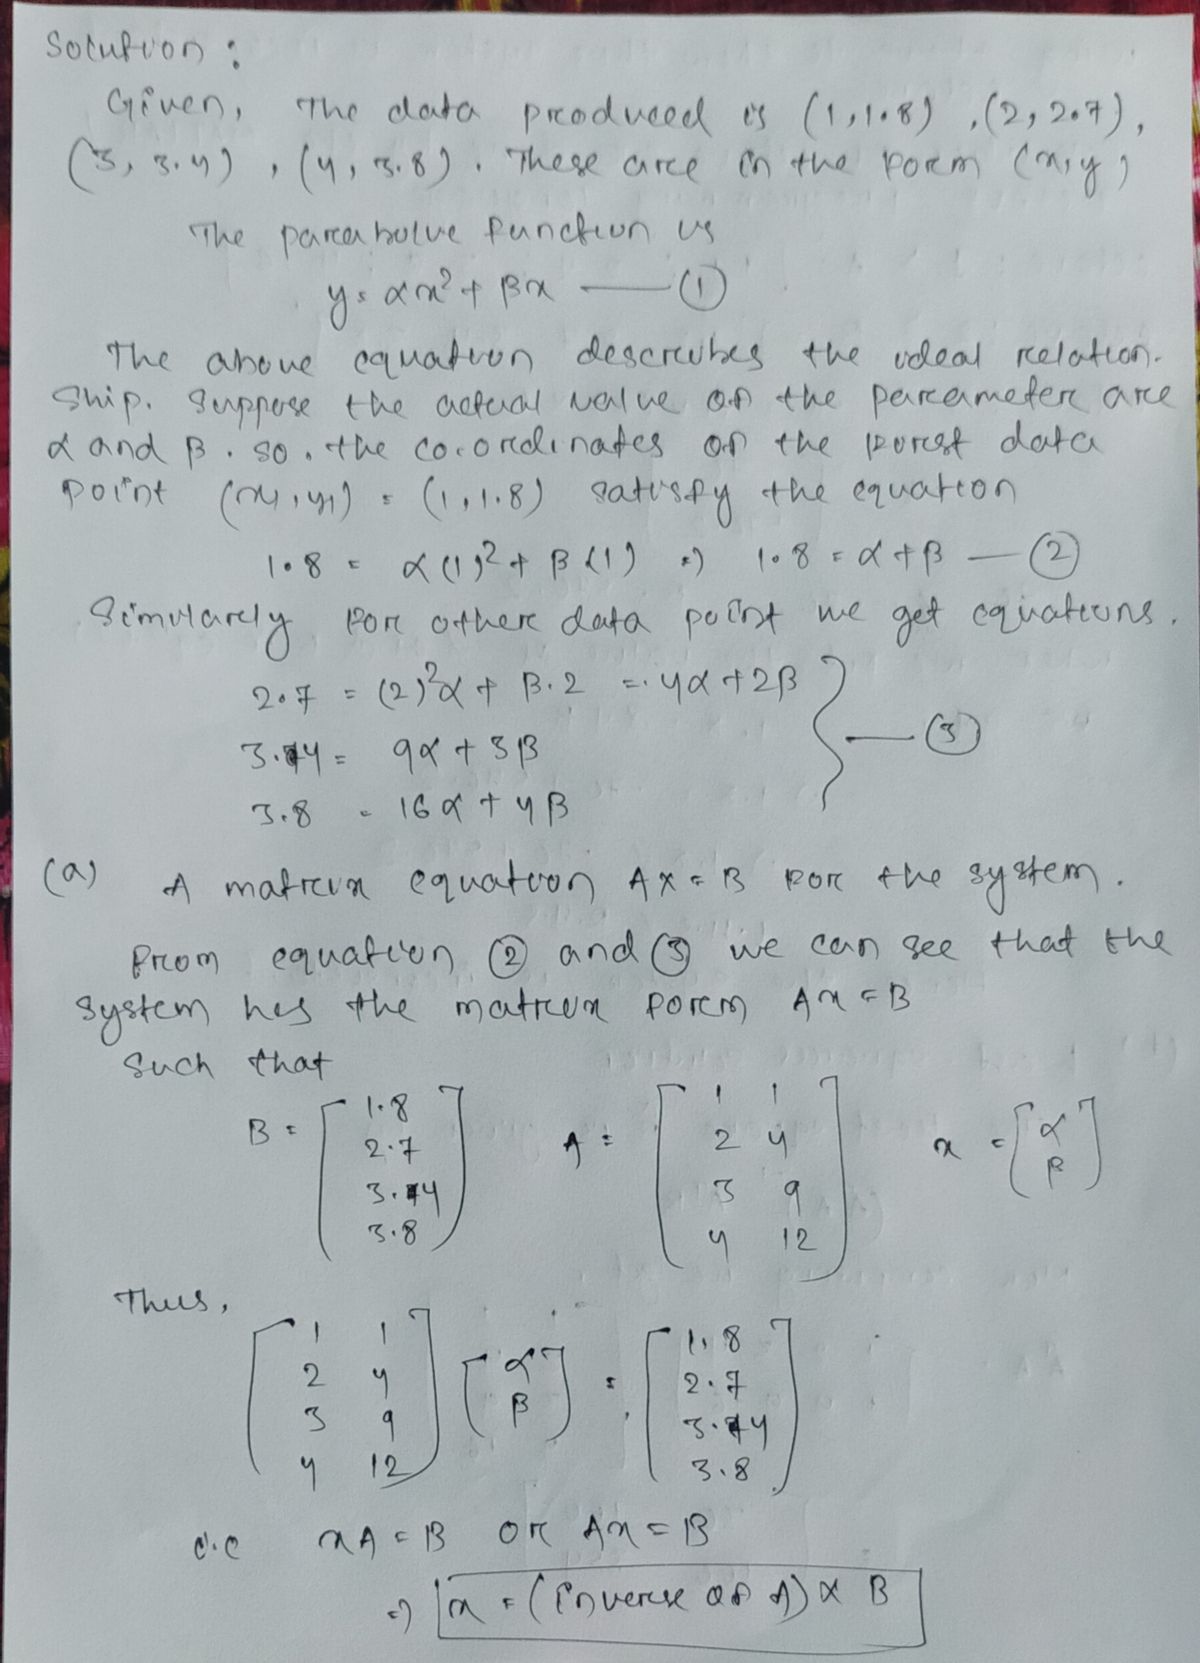 Solution :
Given, The data produced is (1,1.8), (2, 2.7),
(3, 3.4), (4, 3.8). These are in the form (x,y)
The parabolic function is
y = αx² + βx —— ①
The above equation describes the ideal relation-
ship. Suppose the actual value of the parameter are
α and β. so, the co-ordinates of the first data
point (x₁, y₁) = (1, 1.8) satisfy the equation
1.8 = α(1)² + β(1) ⇒ 1.8 = α + β — ②
Similarly for other data point we get equations.
2.7 = (2)²α + β.2 = 4α + 2β
3.4 = 9α + 3β — ③
3.8 = 16α + 4β
(a) A matrix equation AX = B for the system.
From equation ② and ③ we can see that the
system has the matrix form Ax = B
Such that
B = [1.8 2.7 3.4 3.8] A = [1 1 2 4 3 9 4 12] x = [α β]
Thus,
[1 1 2 4 3 9 4 12] [α β] = [1.8 2.7 3.4 3.8]
i.e xA = B or Ax = B
⇒ x = (inverse of A) × B